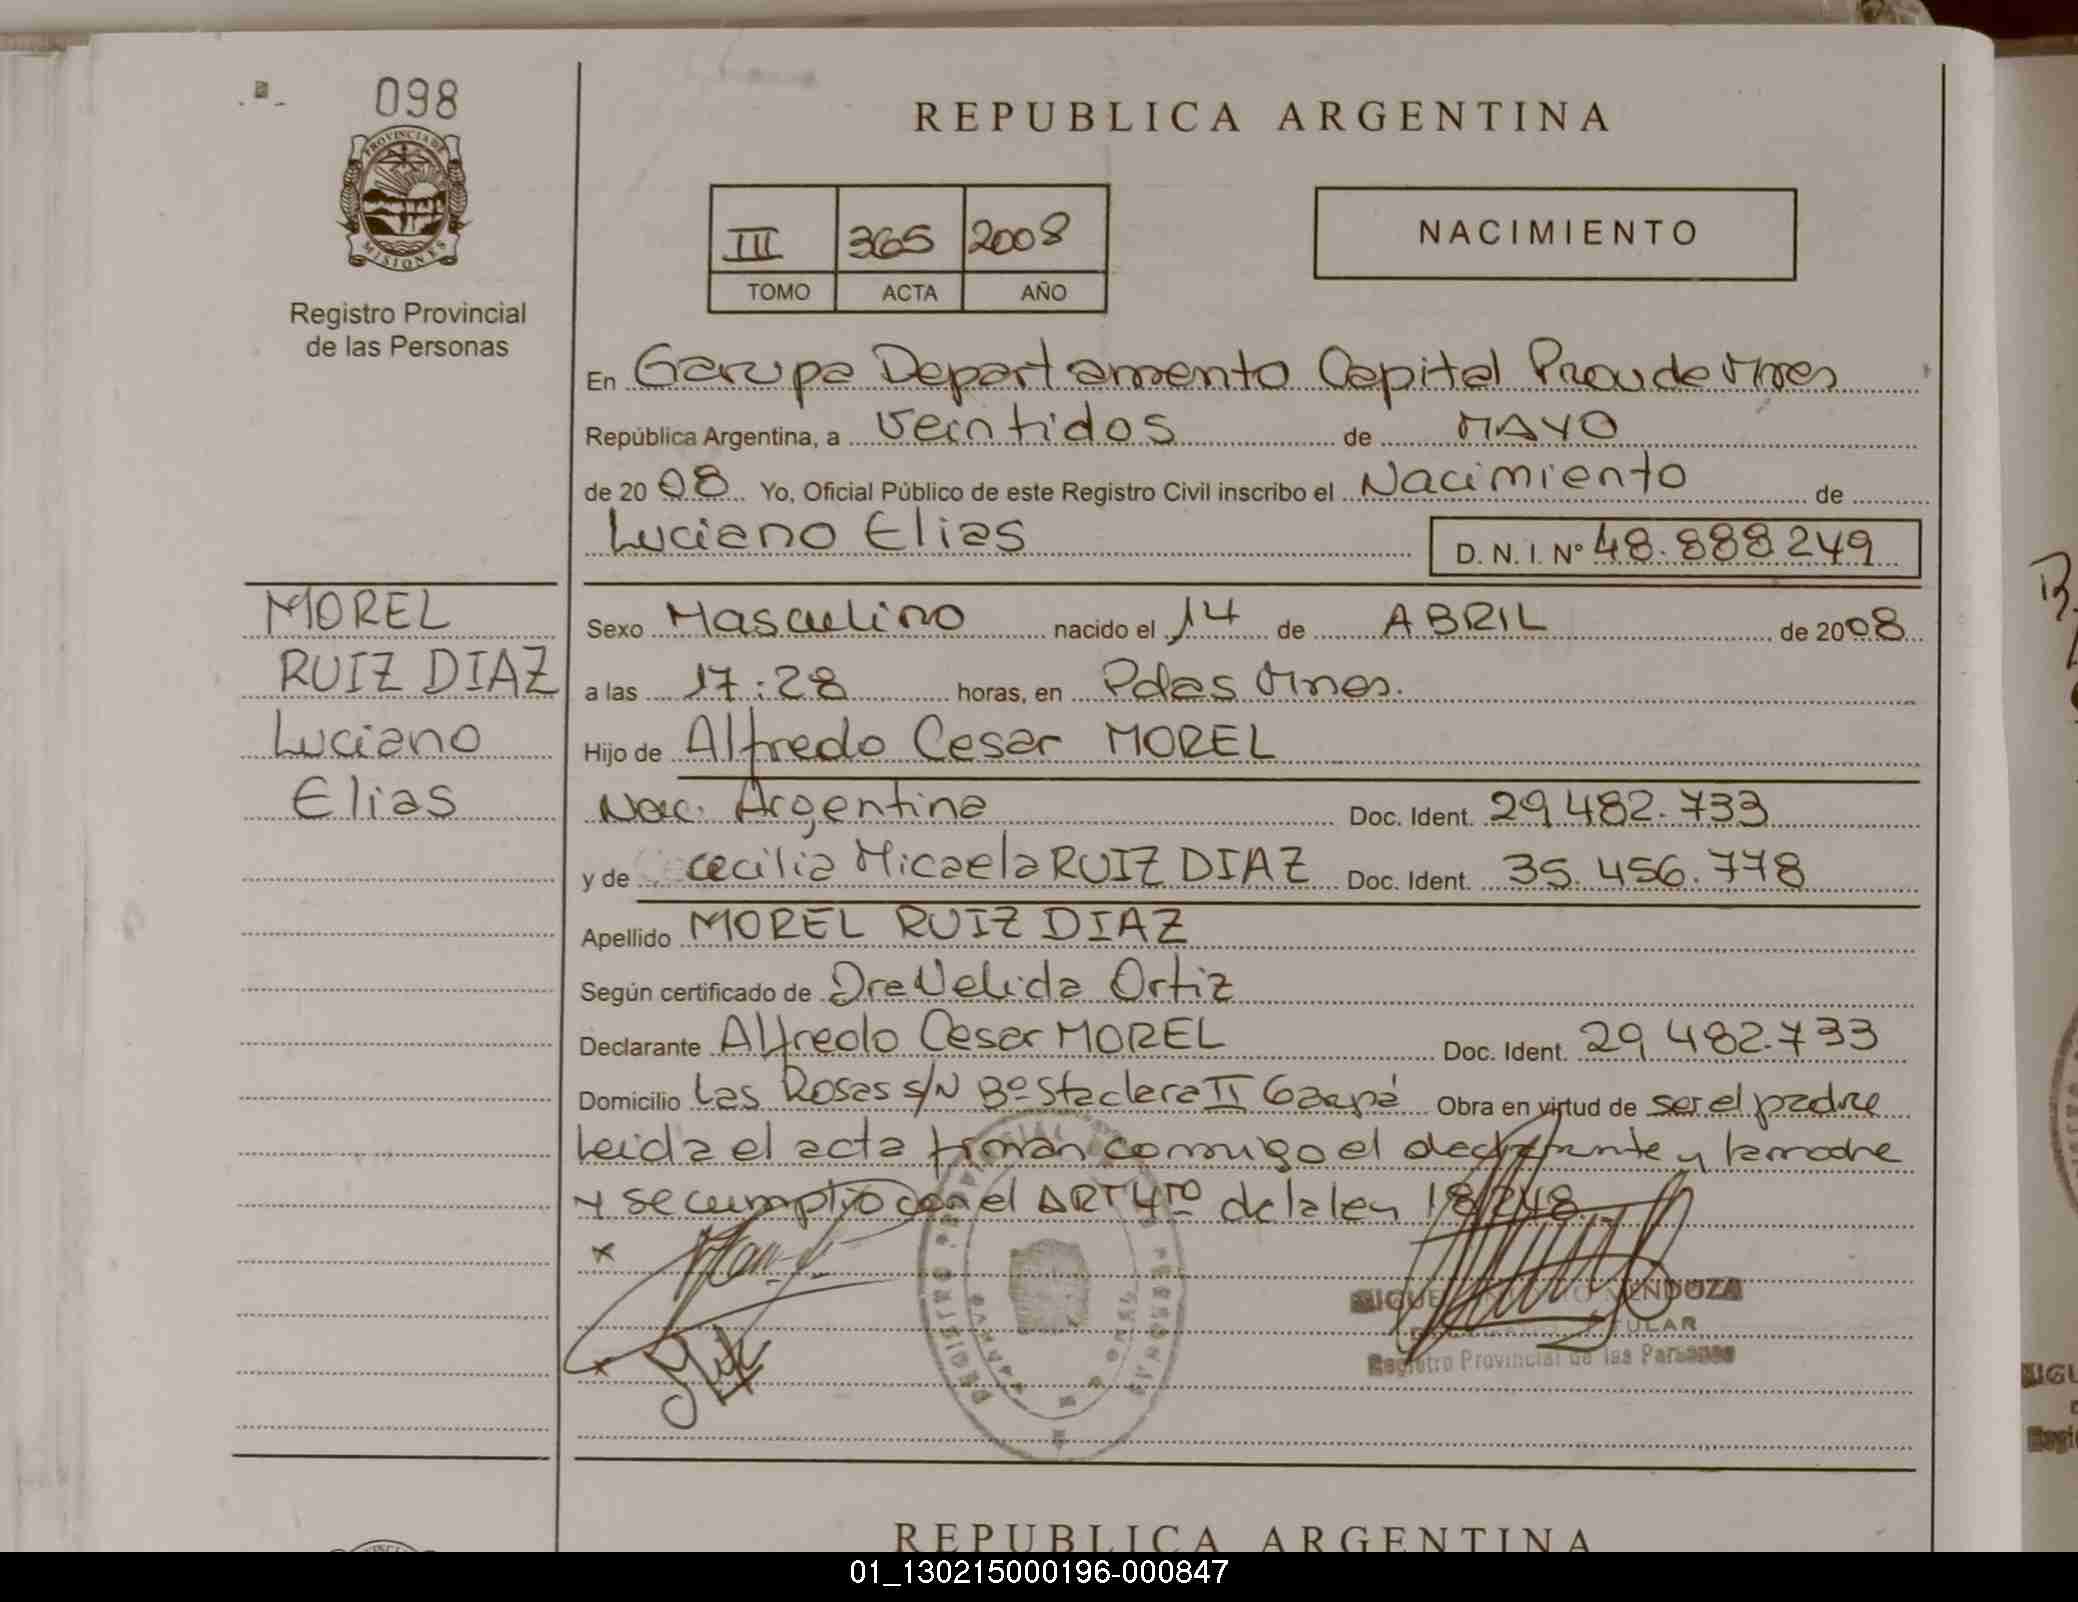 098
PROVINCIA DE
MISIONES
Registro Provincial
de las Personas
REPUBLICA ARGENTINA
III 365 2008
TOMO ACTA AÑO
NACIMIENTO
En Garupa Departamento Capital Prov de Mnes
República Argentina, a veintidos de MAYO
de 20 08 Yo, Oficial Público de este Registro Civil inscribo el Nacimiento de
Luciano Elias D. N. I. N° 48.888.249
MOREL
RUIZ DIAZ
Luciano
Elias
Sexo Masculino nacido el 14 de ABRIL de 2008
a las 17:28 horas, en Pdas Mnes.
Hijo de Alfredo Cesar MOREL
Nac. Argentina Doc. Ident. 29.482.733
y de cecilia Micaela RUIZ DIAZ Doc. Ident. 35.456.778
Apellido MOREL RUIZ DIAZ
Según certificado de Dra Velida Ortiz
Declarante Alfredo Cesar MOREL Doc. Ident. 29.482.733
Domicilio Las Rosas s/N Bº Sta clara II Garupá Obra en virtud de ser el padre
Leida el acta firman conmigo el declarante y la madre
y se cumplio con el ART 4to de la ley 18.248
MENDOZA
Registro Provincial de las Personas
REPUBLICA ARGENTINA
01_130215000196-000847